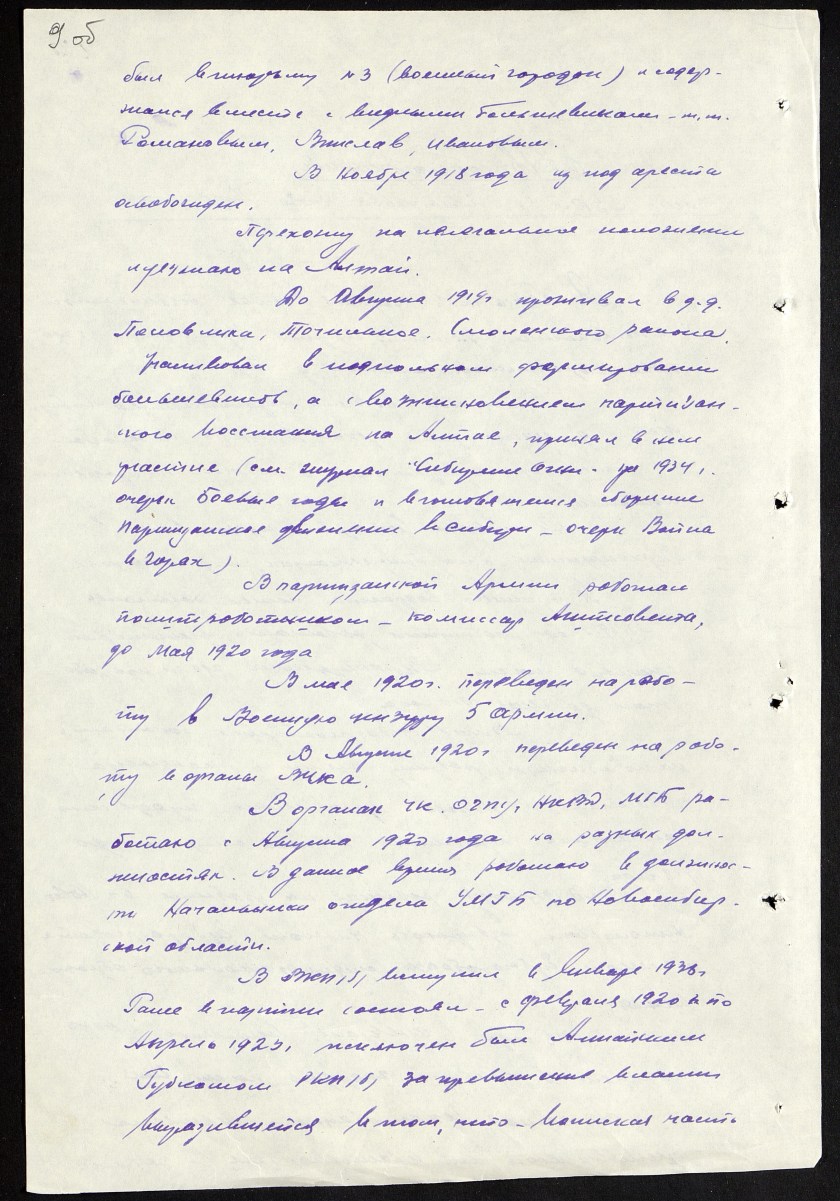 9 об
был в тюрьму №3 (военный городок) и содер-
жался вместе с видными большевиками – т.т.
Романовым, Ивановым.
В Ноябре 1918 года из под ареста
освобожден.
Перехожу на нелегальное положение
и уезжаю на Алтай.
До Августа 1919г проживал в д.д.
Точильное, Смоленского района.
Участвовал в подпольном формировании
большевиков, а с возникновением партизан-
ского восстания на Алтае, принял в нем
участие (см. журнал "Сибирские огни" за 1934 г.
очерк Боевые годы и сборнике
Партизанское движение в Сибири – очерк Война
в горах).
В партизанской Армии работал
политработником – комиссар
до мая 1920 года
В мае 1920г. переведен на рабо-
ту в Военную цензуру 5 армии.
В Августе 1920г переведен на рабо-
ту в органы ВЧКа.
В органах ЧК. ОГПУ, НКВД, МГБ ра-
ботаю с Августа 1920 года на разных дол-
жностях. В данное время работаю в должнос-
ти Начальника отдела УМГБ по Новосибир-
ской области.
В ВКП/б/ вступил в Январе 1938г
Ранее в партии состоял – с февраля 1920 г по
Апрель исключен был Алтайским
Губкомом РКП/б/ за превышение власти
выразившееся в том, что – воинская часть